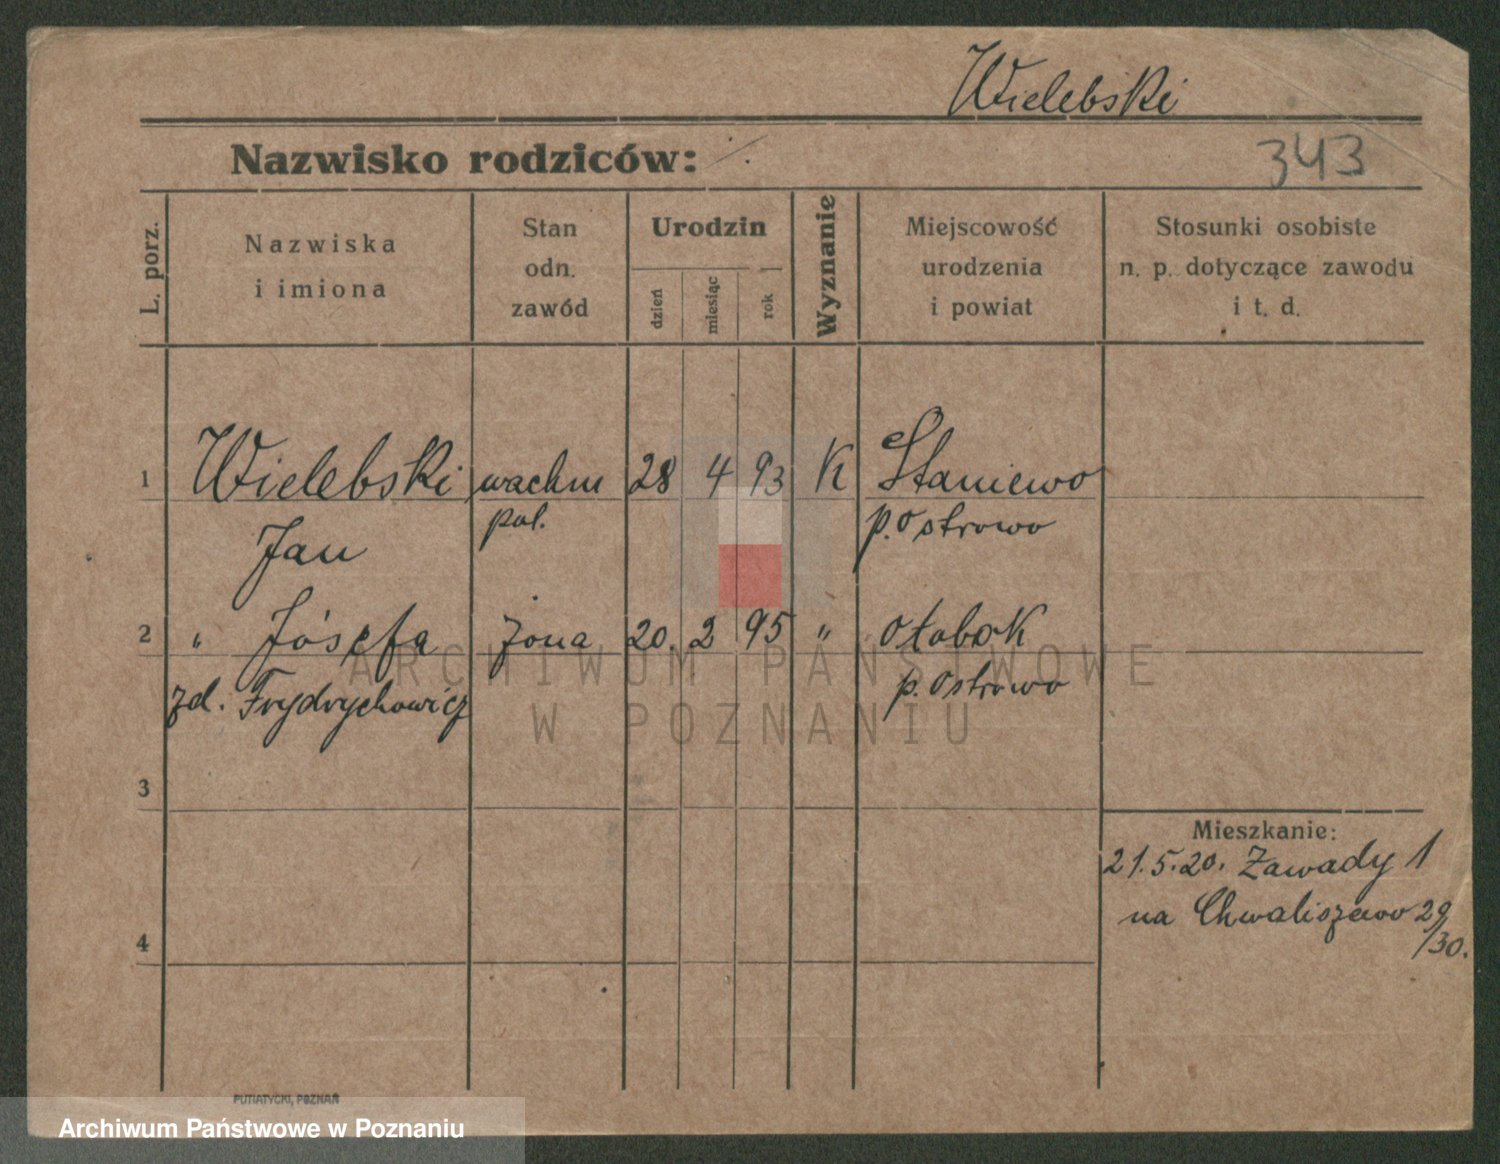 Wielebski
Nazwisko rodziców: ./.
343
L. porz.
Nazwiska
i imiona
Stan
odn.
zawód
Urodzin
dzień
miesiąc
rok
Wyznanie
Miejscowość
urodzenia
i powiat
Stosunki osobiste
n. p. dotyczące zawodu
i t. d.
1 Wielebski wachm 28 4 93 K Staniewo
pol. p. Ostrowo
Jan
2 " Józefa żona 20. 2 95 " Ołobok
zd. Frydrychowicz p. Ostrowo
ARCHIWUM PAŃSTWOWE
W POZNANIU
3
Mieszkanie:
21.5.20. Zawady 1
na Chwaliszewo 29
/30.
4
PUTIATYCKI, POZNAŃ
Archiwum Państwowe w Poznaniu